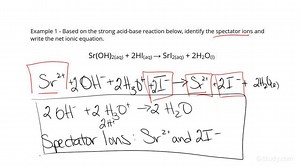 Example 1 - Based on the strong acid-base reaction below, identify the spectator ions and
write the net ionic equation.
Sr(OH)₂(aq) + 2HI(aq) → SrI₂(aq) + 2H₂O(l)
Sr²⁺ + 2OH⁻ + 2H₃O⁺ + 2I⁻ → Sr²⁺ + 2I⁻ + 2H₂O(l)
2OH⁻ + 2H₃O⁺ → 2H₂O
2H⁺
Spectator Ions: Sr²⁺ and 2I⁻